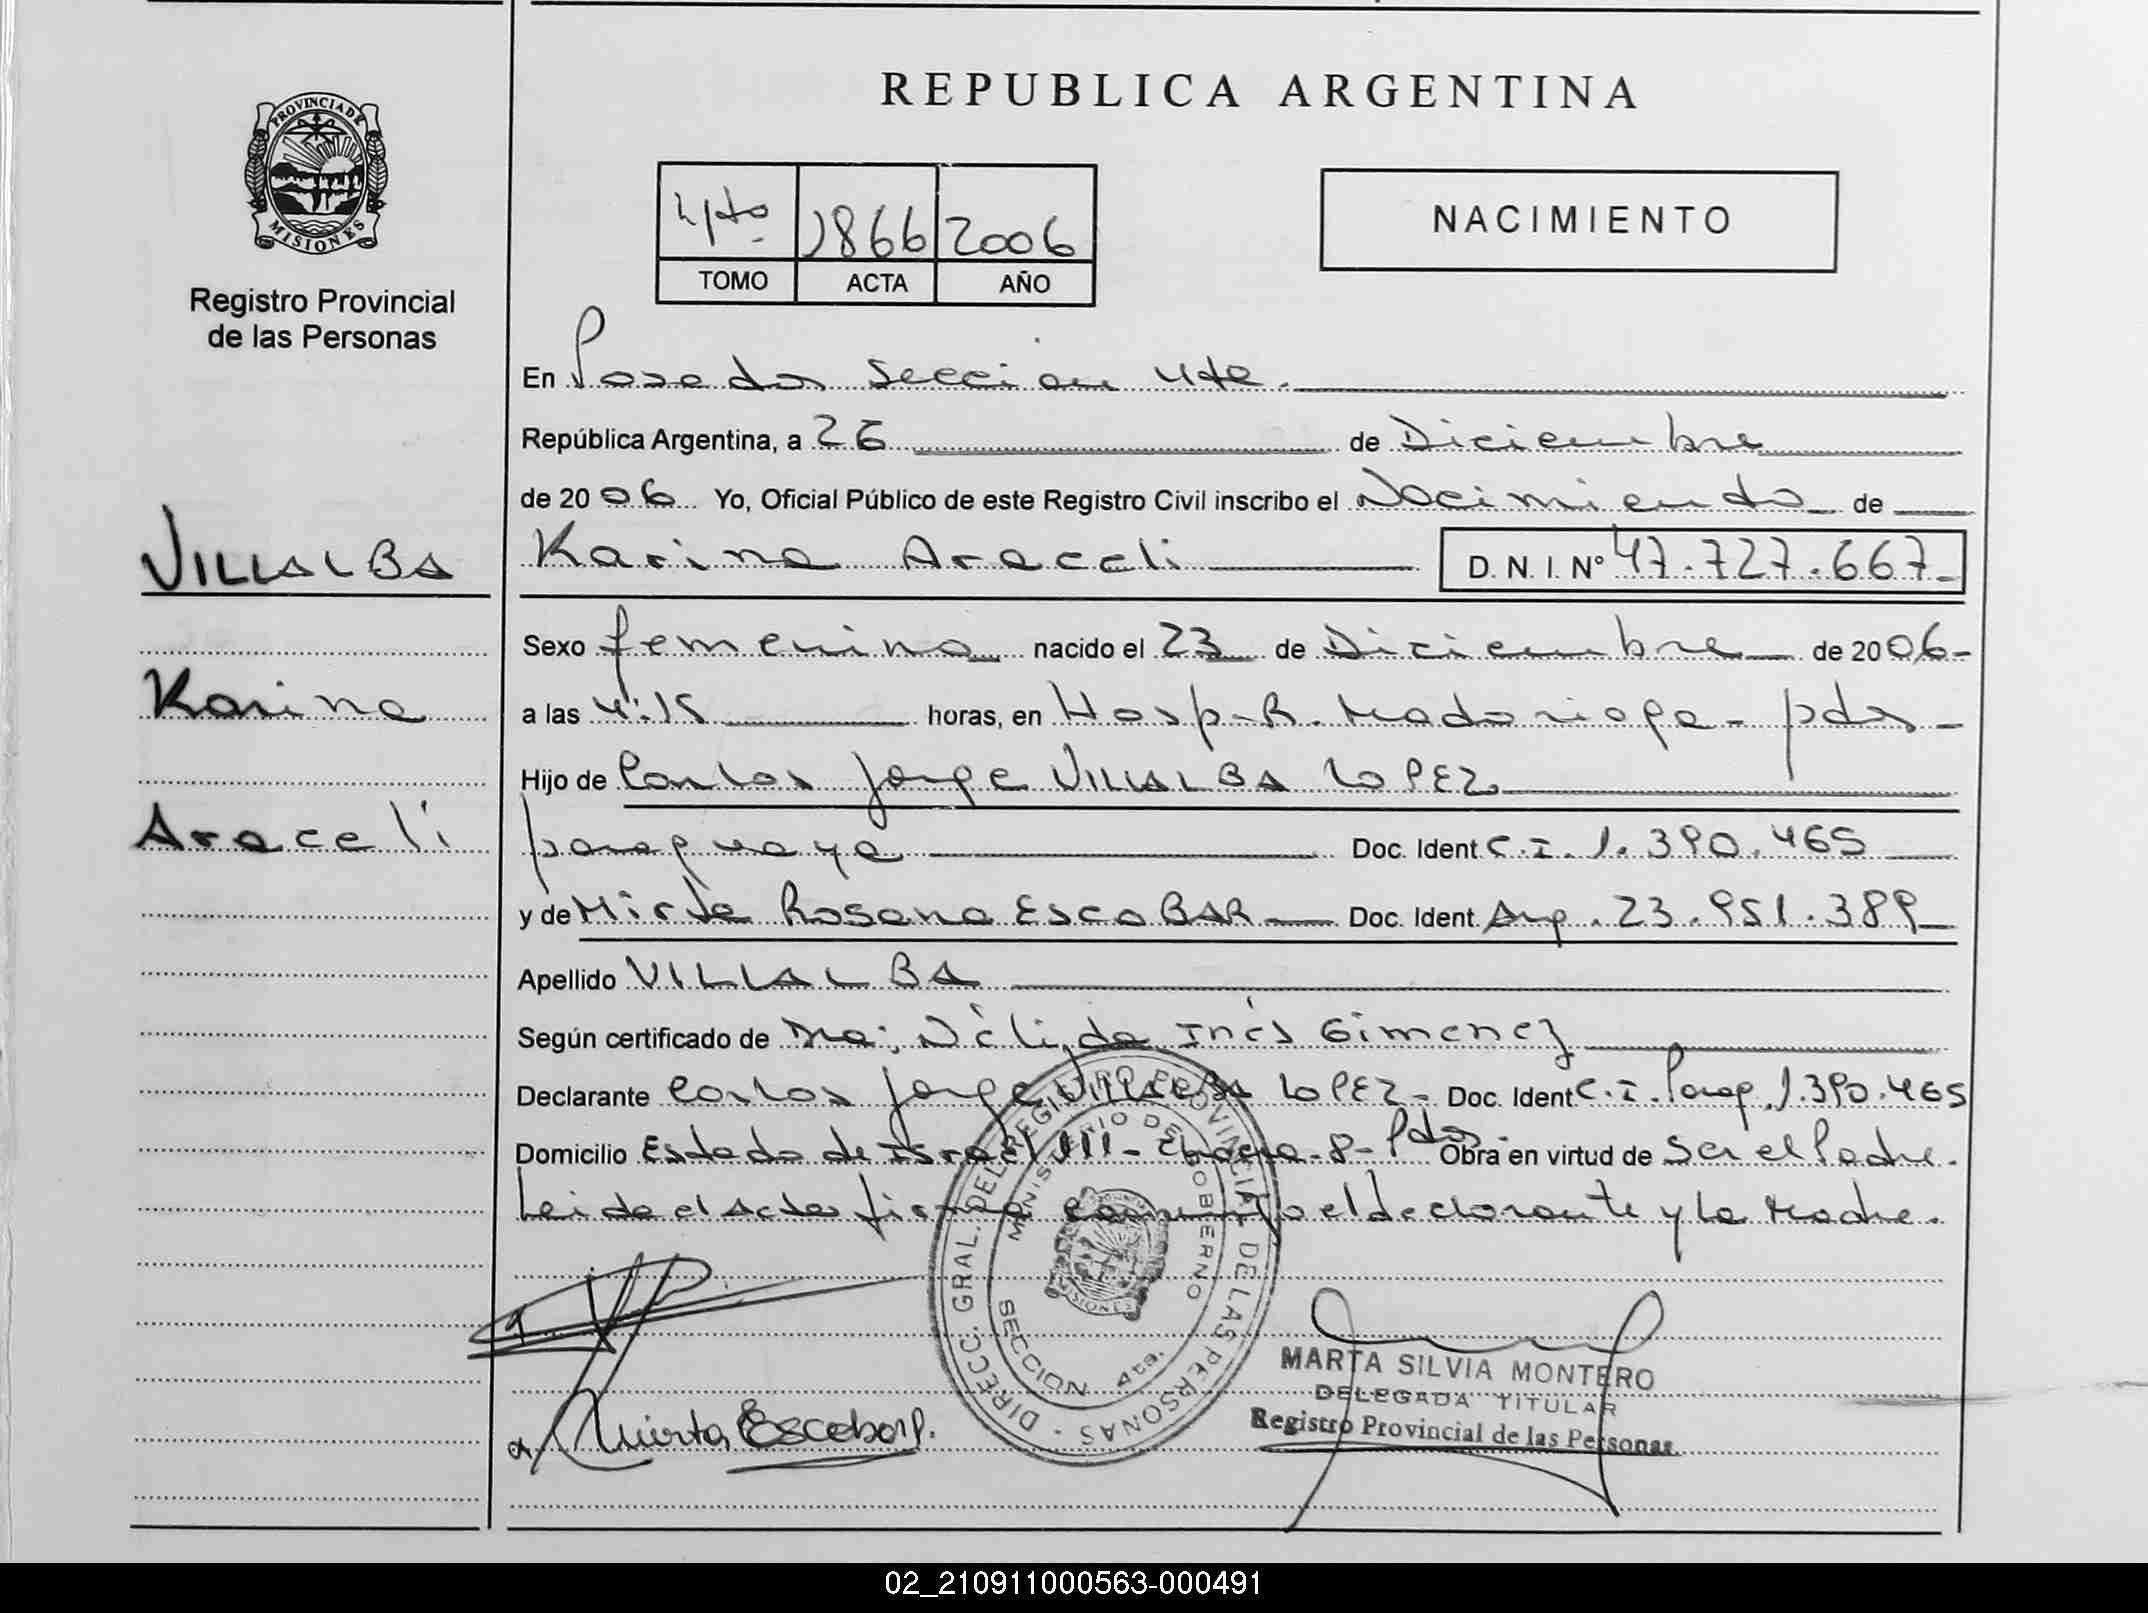 REPUBLICA ARGENTINA
PROVINCIA DE
MISIONES
Registro Provincial
de las Personas
4to 1866 2006
TOMO ACTA AÑO
NACIMIENTO
En Posadas Sección 4ta.
República Argentina, a 26 de Diciembre
de 2006 Yo, Oficial Público de este Registro Civil inscribo el Nacimiento de
VILLALBA
Karina Araceli D.N.I. Nº 47.727.667
Sexo femenino nacido el 23 de Diciembre de 2006
Karina
a las 4:15 horas, en Hosp. R. Madariaga - pdas -
Hijo de Carlos Jorge VILLALBA LOPEZ
Araceli
paraguaya Doc. Ident C.I. 1.390.465
y de Mirta Rosana ESCOBAR Doc. Ident. Arg. 23.951.389
Apellido VILLALBA
Según certificado de Nélida Inés Gimenez
Declarante Carlos Jorge VILLALBA LOPEZ - Doc. Ident C.I. Parag. 1.390.465
Domicilio Estado de Israel III - Chacra - 8 - Pdas. Obra en virtud de ser el Padre.
Leida el Acta firma conmigo el declarante y la Madre.
DIRECC. GRAL. DEL REGISTRO PROVINCIAL DE LAS PERSONAS
MINISTERIO DE GOBIERNO
MISIONES
SECCION 4ta.
MARTA SILVIA MONTERO
DELEGADA TITULAR
Registro Provincial de las Personas
Mirta Escobar
02_210911000563-000491